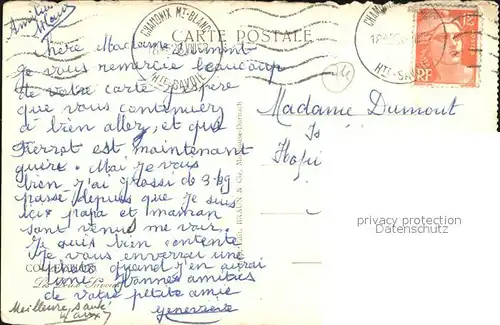 CARTE POSTALE
CHAMONIX MT-BLANC
HTE-SAVOIE
RF
Chère Madame Dumont
Je vous remercie beaucoup
de votre carte j'espère
que vous continuez
à bien aller, et que
Pierrot est maintenant
guéri. Moi je vais
bien j'ai grossi de 3 kg
passé depuis que je suis
ici papa et maman
sont venus me voir.
Je suis bien contente
Je vous enverrai une
photo quand j'en aurai
une. Bonnes amitiés
de votre petite amie
Geneviève
Meilleure santé
Madame Dumont
privacy protection
DATENSCHUTZ